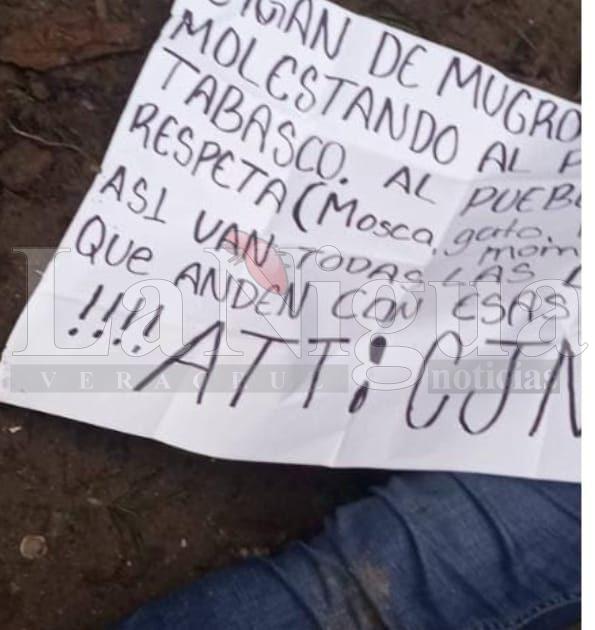 SIGAN DE MUGRO
MOLESTANDO AL P
TABASCO. AL PUEBL
RESPETA (Mosca, gato,
ASI VAN TODAS LAS
QUE ANDEN CON ESAS
!!!! ATT: CJN
LaNigua
VERACRUZ noticias